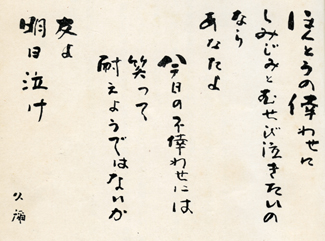 ほんとうの倖わせに
しみじみとむせび泣きたいの
なら
あなたよ
今日の不倖わせには
笑って
耐えようではないか
友よ
明日泣け